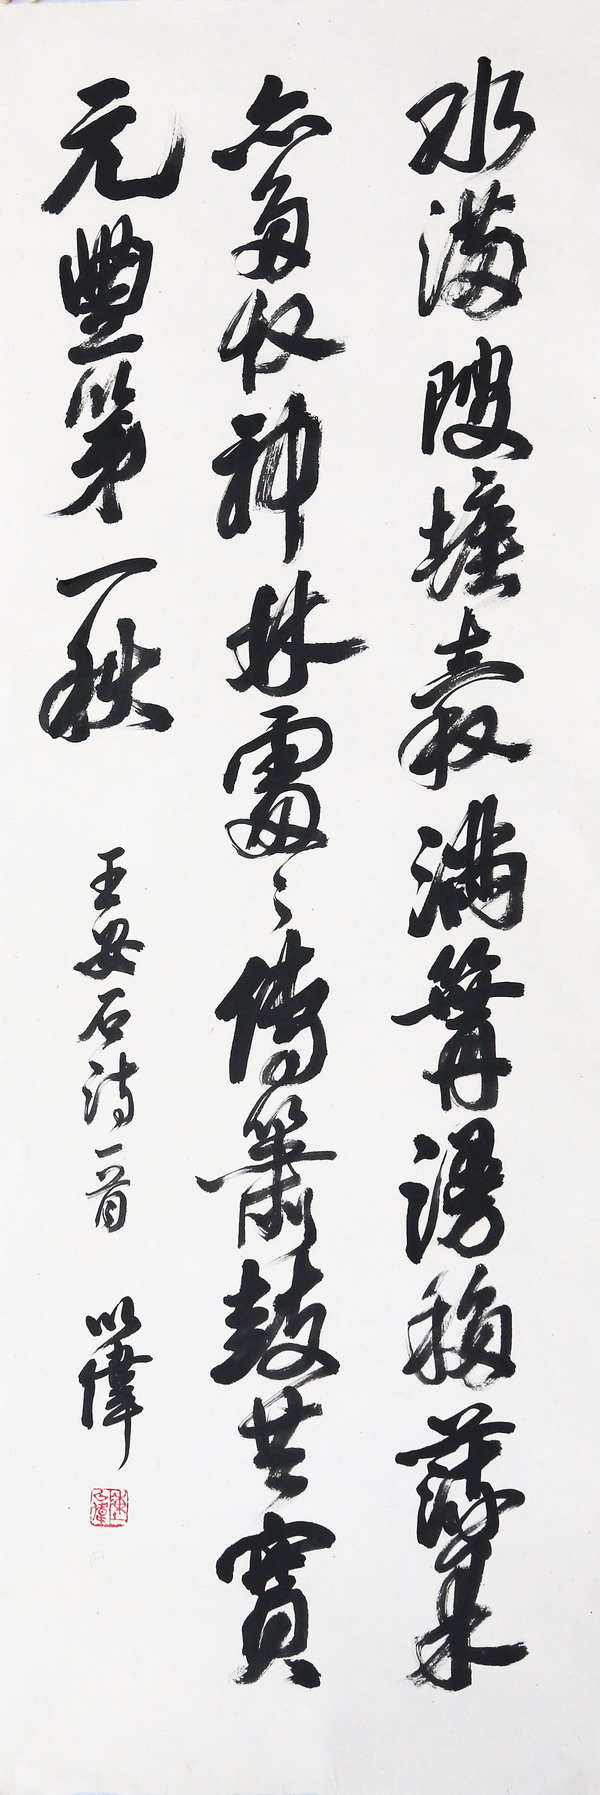 水滿陂塘穀滿篝漫移蔬果
亦多收神林處々傳簫鼓共賽
元豐第一秋
王安石詩一首 以偉